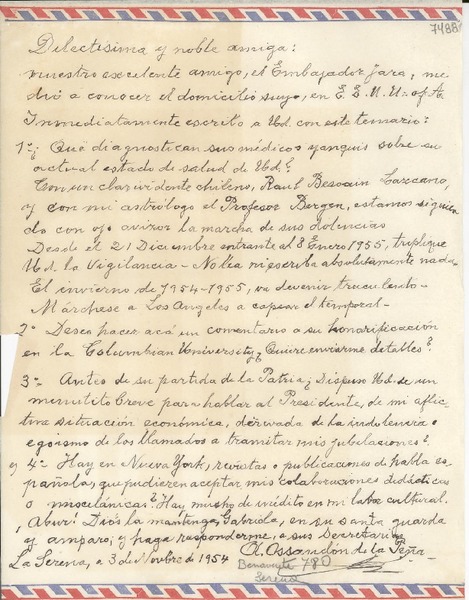 7488
Dilectísima y noble amiga:
nuestro excelente amigo, el Embajador Jara, me
dió a conocer el domicilio suyo, en E. E. U. U. of A.
Inmediatamente escribo a Ud. con este temario:
1º ¿Qué diagnostican sus médicos yanquis sobre su
actual estado de salud de Ud.?
Con un clarividente chileno, Raul Besoain Lazcano,
y con mi astrólogo el Profesor Bergen, estamos siguien
do con ojo avizor la marcha de sus dolencias
Desde el 21 Diciembre entrante al 8 Enero 1955, triplique
Ud. la Vigilancia - No lea ni escriba absolutamente nada.
El invierno de 1954-1955, va devenir truculento-
Márchese a Los Angeles a capear el temporal-
2º Deseo hacer acá un comentario a su honorificación
en la Columbian University ¿Quiere enviarme detalles?
3º- Antes de su partida de la Patria ¿Dispuso Ud. de un
minutito breve para hablar al Presidente, de mi aflic
tiva situación económica, derivada de la indolencia o
egoísmo de los llamados a tramitar mis jubilaciones?,
y 4º- Hay en Nueva York, revistas o publicaciones de habla es
pañola, que pudieren aceptar mis colaboraciones didácticas
o misceláneas? Hay mucho de inédito en mi labor cultural.
¡Abur! Dios la mantenga, Gabriela, en su santa guarda
y amparo, y haga responderme, a sus secretarias
La Serena, a 3 de Nvbre de 1954 A. Ossandón de la Peña
Benavente 780
Serena